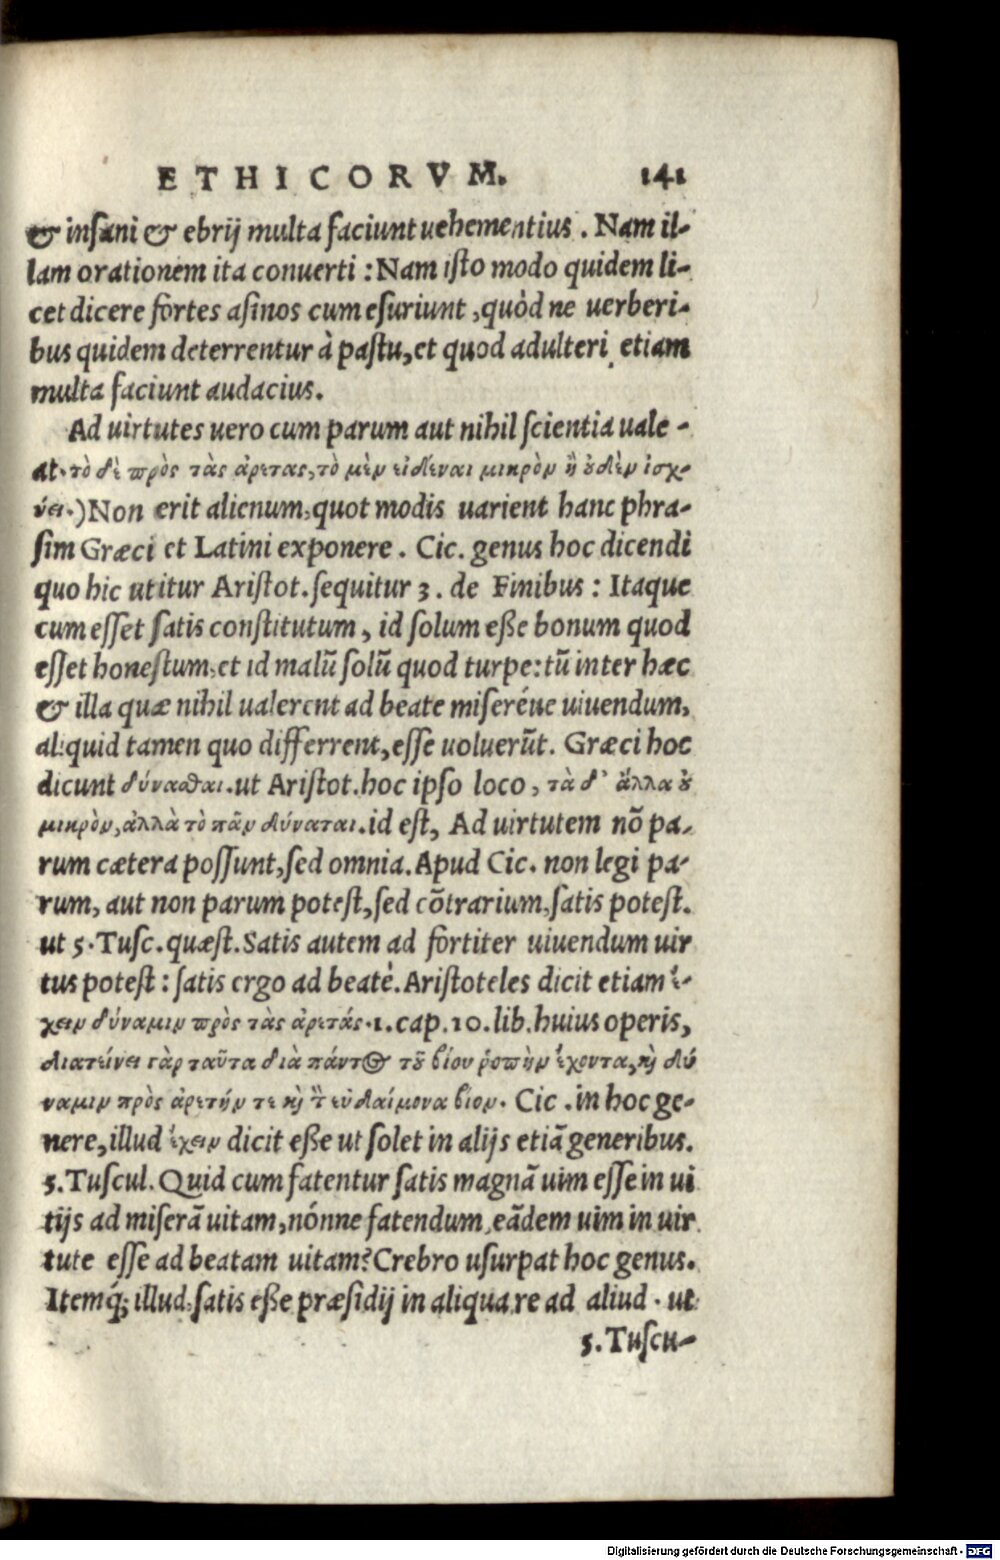 ETHICORVM. 141
& insani & ebrij multa faciunt uehementius . Nam il-
lam orationem ita conuerti : Nam isto modo quidem li-
cet dicere fortes asinos cum esuriunt ,quòd ne uerberi-
bus quidem deterrentur à pastu, et quod adulteri etiam
multa faciunt audacius.
Ad uirtutes uero cum parum aut nihil scientia uale -
at. τὸ δὲ πρὸς τὰς ἀρετας, τὸ μὲν εἰδέναι μικρὸν ἢ ὀδὲν ἰσχ-
ύει.) Non erit alienum, quot modis uarient hanc phra-
sim Græci et Latini exponere . Cic. genus hoc dicendi
quo hic utitur Aristot. sequitur 3. de Finibus : Itaque
cum esset satis constitutum , id solum eße bonum quod
esset honestum, et id malũ solũ quod turpe: tũ inter hæc
& illa quæ nihil ualerent ad beate miseréue uiuendum,
aliquid tamen quo differrent, esse uoluerũt. Græci hoc
dicunt δύναϑαι. ut Aristot. hoc ipso loco , τὰ δ᾽ ἄλλα ȣ
μικρὸν, ἀλλὰ τὸ πᾶν δύναται. id est, Ad uirtutem nõ pa-
rum cætera possunt, sed omnia. Apud Cic. non legi pa-
rum, aut non parum potest, sed cõtrarium, satis potest.
ut 5. Tusc. quæst. Satis autem ad fortiter uiuendum uir
tus potest : satis ergo ad beatè. Aristoteles dicit etiam ἔ-
χειν δύναμιν πρὸς τὰς ἀρετάς. 1. cap. 10. lib. huius operis,
διατείνει γὰρ ταῦτα διὰ πάντος τȣ͂ βίου ῥοπὴν ἔχοντα, ϗ δύ
ναμιν πρὸς ἀρετήν τε ϗ τ̀ εὐδαίμονα βίον. Cic . in hoc ge-
nere, illud ἔχειν dicit eße ut solet in alijs etiã generibus.
5. Tuscul. Quid cum fatentur satis magnã uim esse in ui
tijs ad miserã uitam, nónne fatendum, eãdem uim in uir
tute esse ad beatam uitam? Crebro usurpat hoc genus.
Itemq́; illud, satis eße præsidij in aliqua re ad aliud . ut
5. Tuscu-
Digitalisierung gefördert durch die Deutsche Forschungsgemeinschaft - DFG